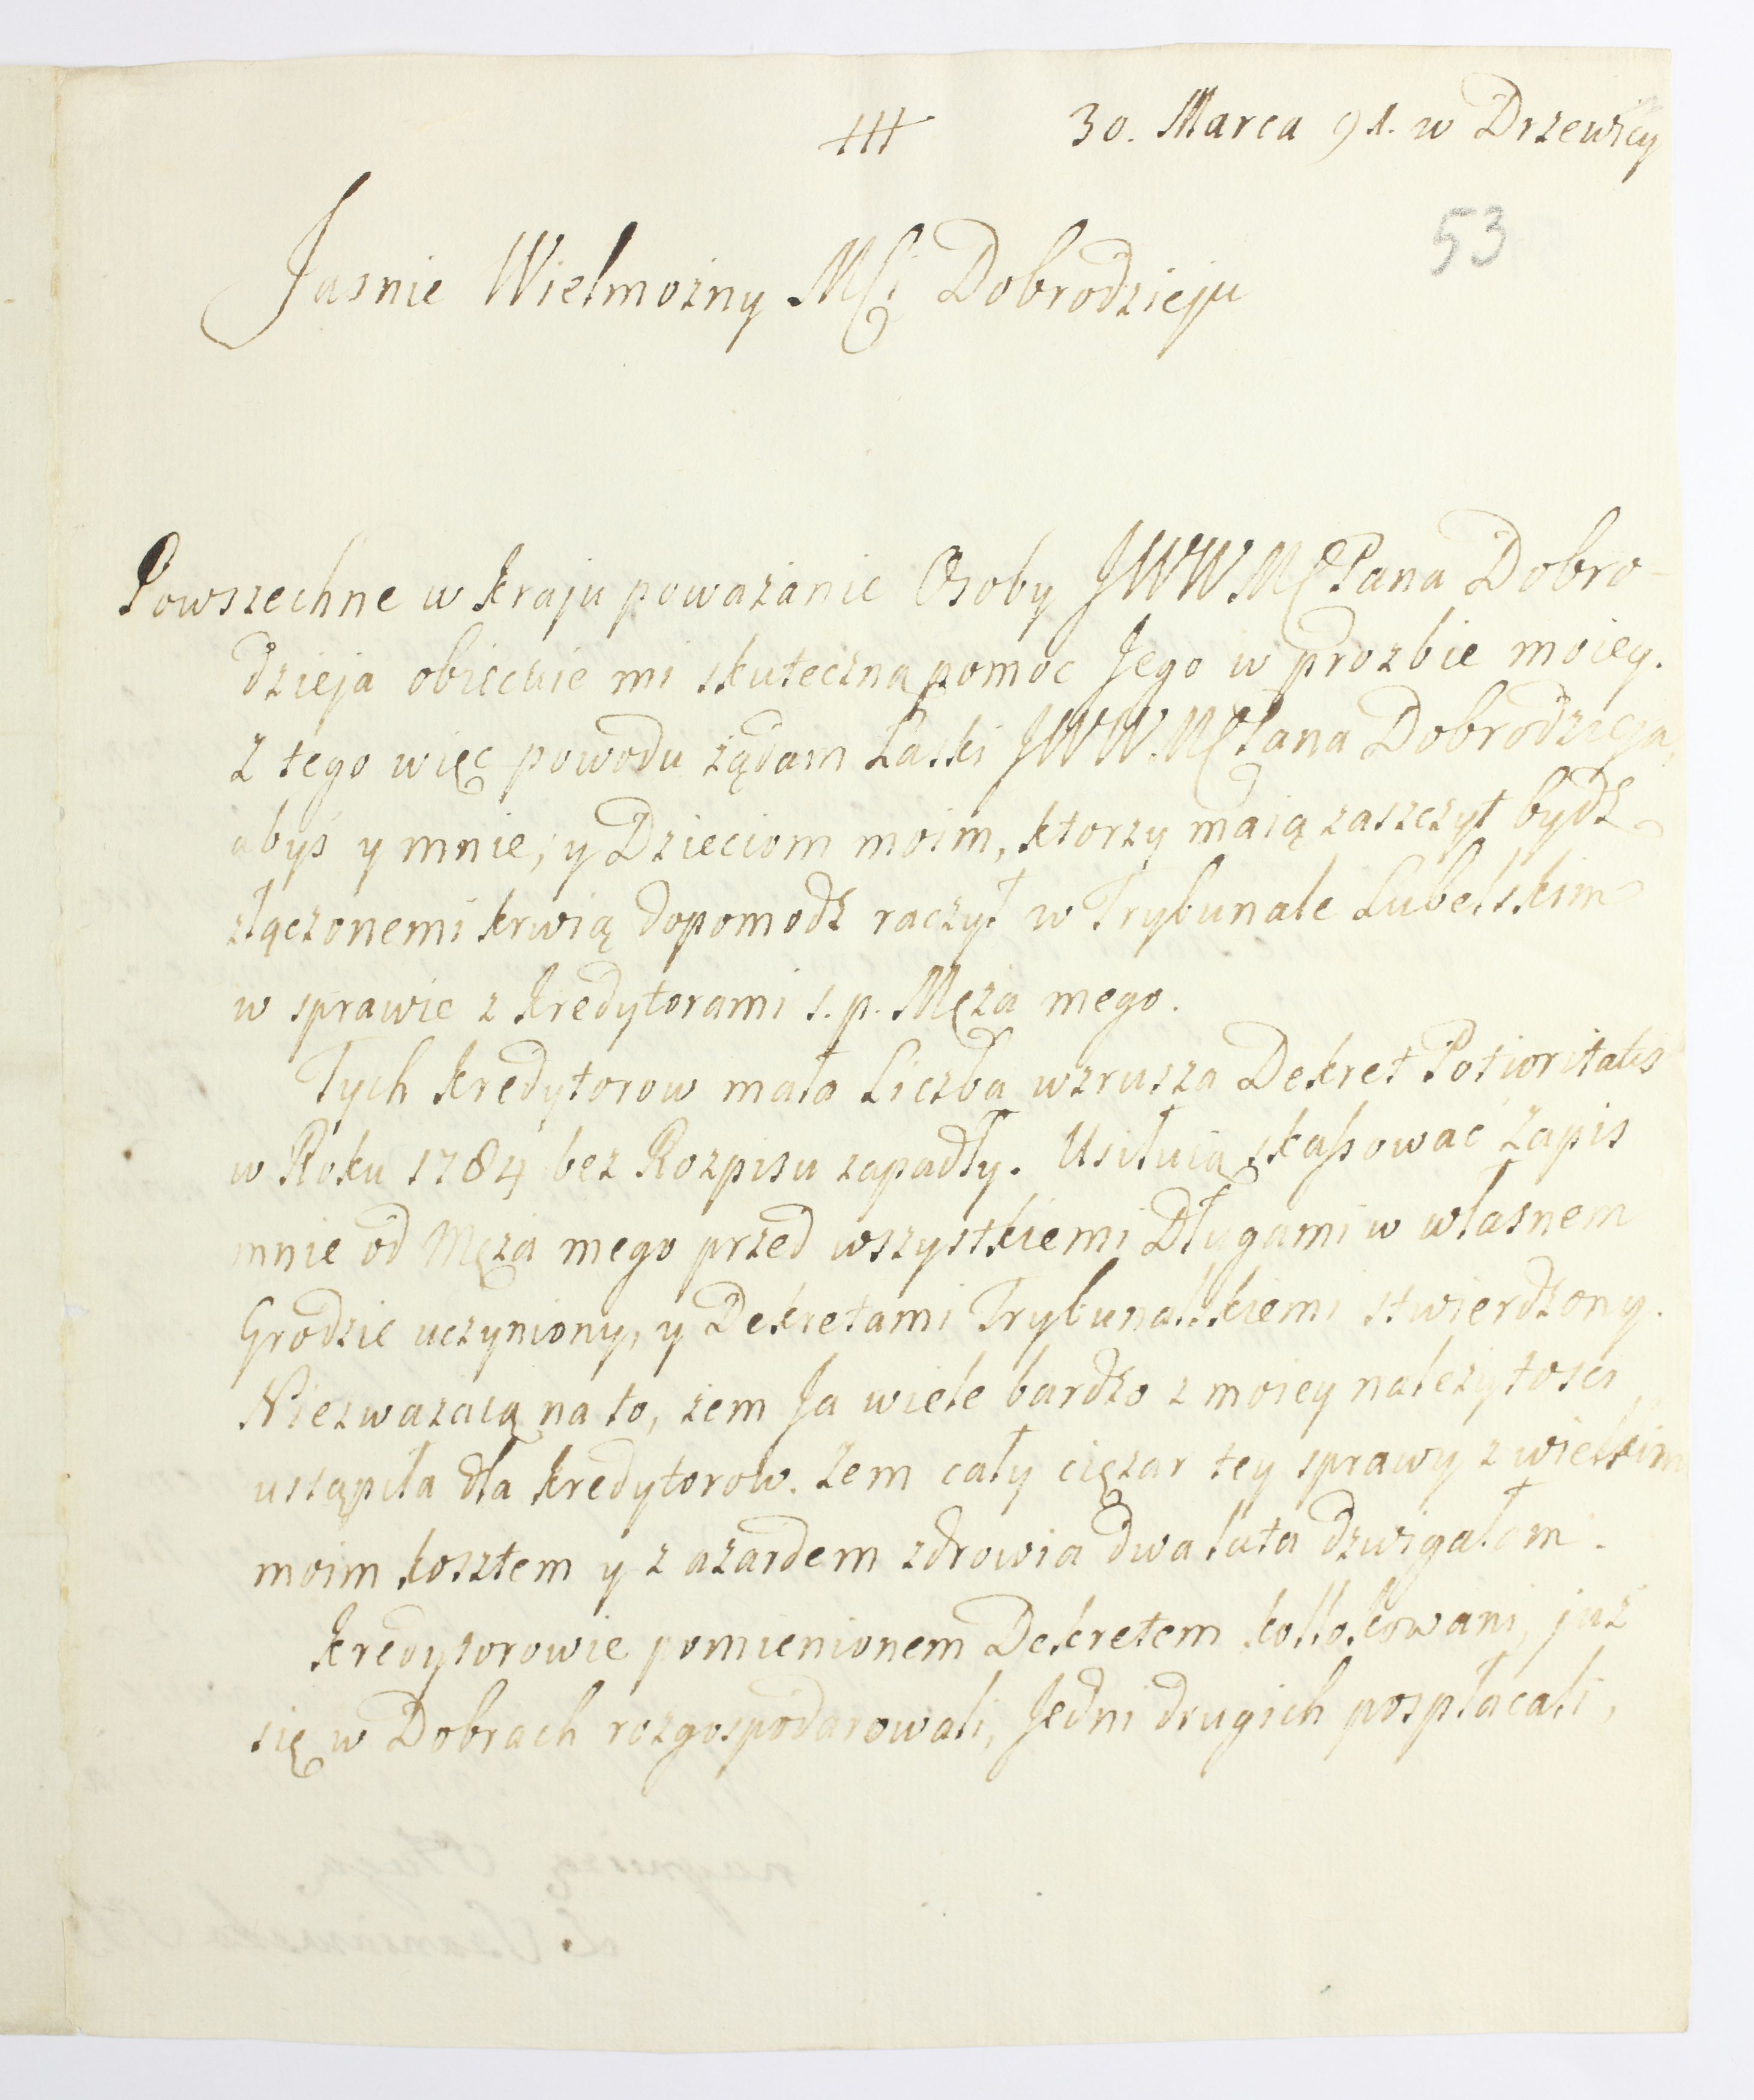 30. Marca 91. w Drzewicy
53
Jasnie Wielmożny MCi Dobrodzieju
Powszechne w kraju poważanie Osoby JWWMCPana Dobro-
dzieja obiecuie mi skuteczną pomoc Jego w prozbie moiey.
Z tego więc powodu żądam Łaski JWWMCPana Dobrodzieja,
abyś y mnie, y Dzieciom moim, ktorzy maią zaszczyt bydź
złączonemi krwią dopomodz raczył w Trybunale Lubelskim
w sprawie z kredytorami s. p. Męża mego.
Tych kredytorow mała Liczba wzrusza Dekret Potioritatis
w Roku 1784 bez Rozpisu zapadły. Usiłuią skassować Zapis
mnie od Męża mego przed wszystkiemi Długami w własnem
Grodzie uczyniony, y Dekretami Trybunalskiemi stwierdzony.
Niezważaią na to, żem Ja wiele bardzo z moiey należytosci
ustąpiła dla kredytorow. Żem cały ciężar tey sprawy z wielkim
moim kosztem y z azardem zdrowia dwa lata dzwigałam.
Kredytorowie pomienionem Dekretem kollokowani, już
się w Dobrach rozgospodarowali, Jedni drugich pospłacali,